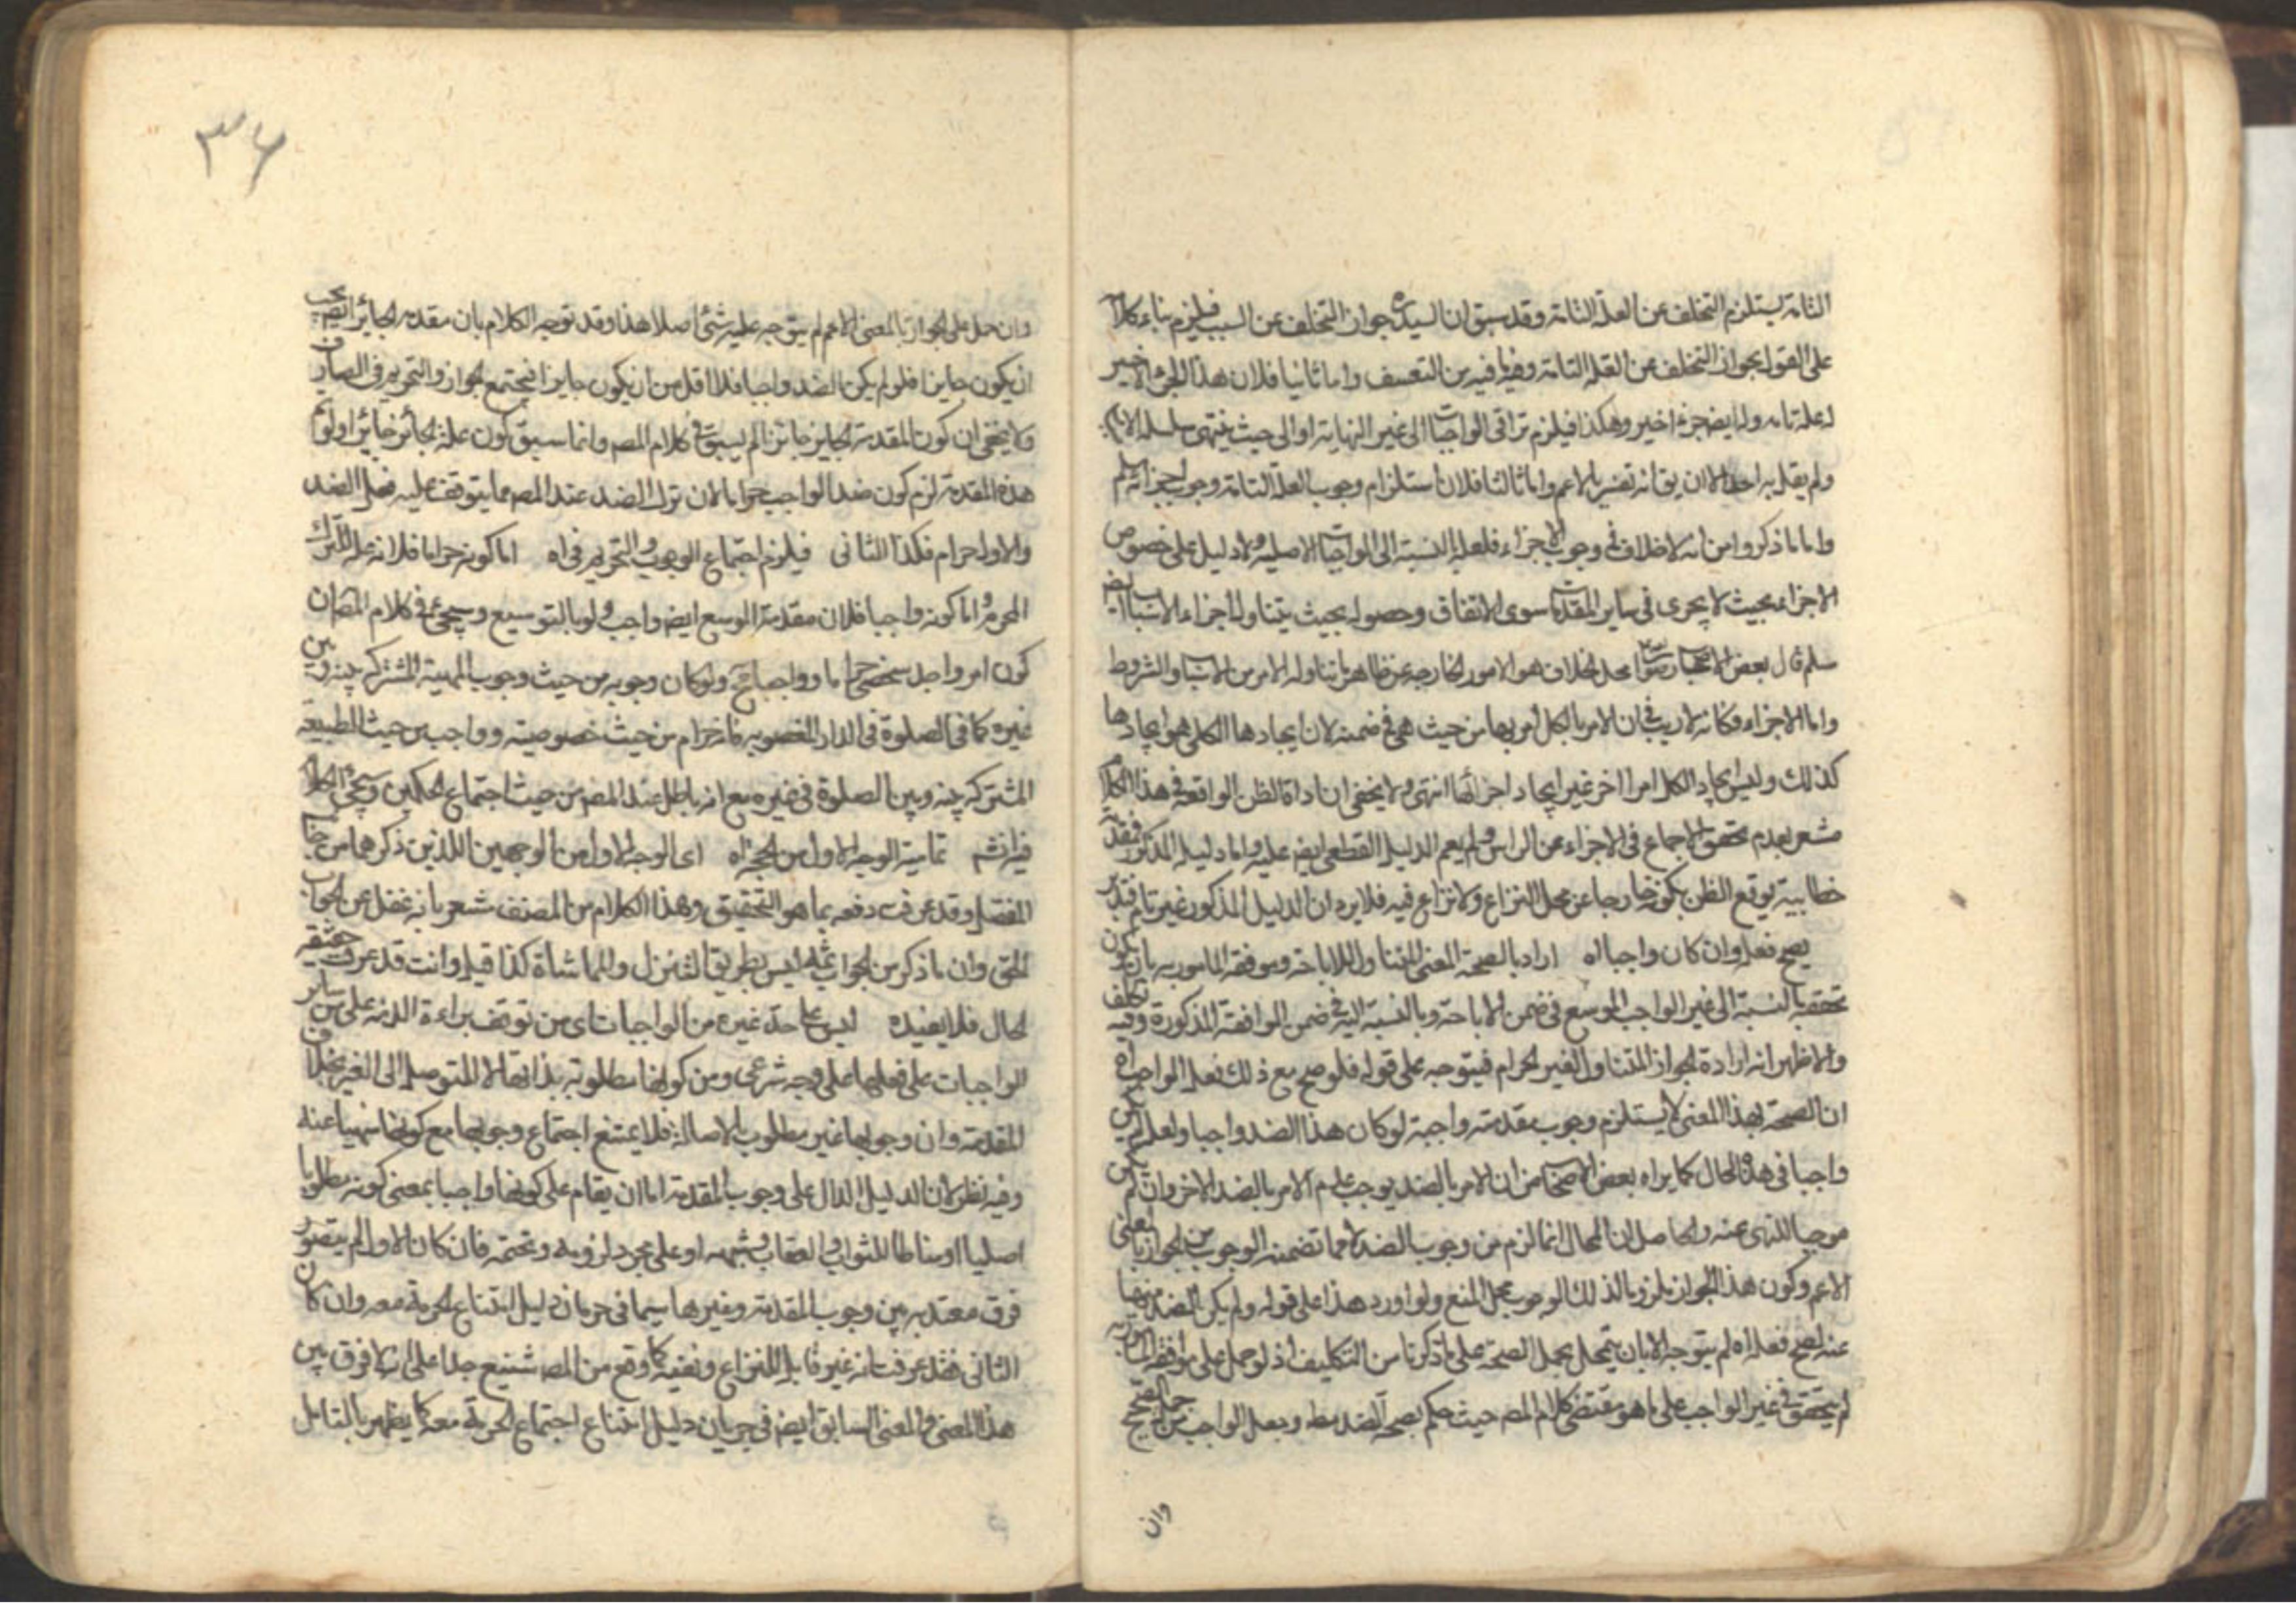 التامة يستلزم التخلف عن العلة التامة وقد سبق ان السيد ره جوان التخلف عن السبب فيلزم بناء كلامه
على القول بجواز التخلف عن العلة التامة وفيه ما فيه من التعسف واما ثانيا فلان هذا الجزء الاخير
له علة تامه وله ايضا جزء اخير وهكذا فيلزم تراقى الواجبات الى غير النهاية او الى حيث ينتهى سلسلة
ولم يقل به احد الا ان يق انه تفسير بالاعم واما ثالثا فلان استلزام وجوب العلة التامة وجوب اجزائه
واما ما ذكروا من انه لا خلاف فى وجوب الاجزاء فلعله بالنسبة الى الواجبات الاصلية ولا دليل على خصوص
الاجزاء بحيث لا يجرى فى ساير المقدمات سوى الاتفاق وحصوله بحيث يتناول اجزاء الاسباب ايض
سلم قال بعض محل الخلاف هو الامور الخارجه عن ظاهر ما يتناوله الامر من الاسباب والشروط
واما الاجزاء فكانه لا ريب فى ان الامر بالكل امر بها من حيث هى فى ضمنه لان ايجادها الكلى هو ايجادها
كذلك وليس ايجاد الكل امرا اخر غير ايجاد اجزائها انتهى ولا يخفى ان اداة الظن الواقعة فى هذا الكلام
مشعر بعدم تحقق الاجماع فى الاجزاء عن الراس ولم يعم الدليل القطعى ايض عليه واما دليله المذكور
خطابية يوقع الظن بكونه خارجا عن محل النزاع ولا نزاع فيه فلا يرد ان الدليل المذكور غير تام فتدبر
يصح فعله وان كان واجبا اه اراد بالصحة المعنى المتناول للاباحة وموافقه المامور به بان يكون
تحققه بالنسبة الى غير الواجب الموسع فى ضمن الاباحة وبالنسبة اليه فى ضمن الموافقة المذكورة وفيه تكلف
والاظهر انه اراده الجواز المتناول الغير الحرام فيتوجه على قوله فلو صح مع ذلك فعل الواجب اه
ان الصحة بهذا المعنى لا يستلزم وجوب مقدمته واجبة لو كان هذا الضد واجبا ولعله ليس
واجبا فى هذه الحال كما يراه بعض الاصحاب من ان الامر بالضد يوجب عدم الامر بالضد الاخر وان لم يكن
موجبا للنهى عنه والحاصل ان المحال انما لزم من وجوب الضد لا مما تضمنه الوجوب من الجواز بالمعنى
الاعم وكون هذا الجواز ملزوما لذلك الوجوب محل المنع ولو اورد هذا على قوله ولم يكن الضد منهيا
عنه لصح فعله اه لم يتوجه الا بان يتمحل بحمل الصحة على ما ذكرنا من التكليف اذ لو حمل على موافقه المامور به
لم يتحقق فى غير الواجب على ما هو مقتضى كلام المصـ حيث حكم بصحه الضد مطـ وجعل الواجب من جملة الصحيح
وان
٣٦
وان حمل على الجواز بالمعنى الاعم لم يتوجه عليه شئ اصلا هذا وقد توجه الكلام بان مقدمه الجائز ايض يجب
ان يكون جايزا فلو لم يكن الضد واجبا فلا اقل من ان يكون جايزا فيجتمع الجواز والتحريم فى الصارف
ولا يخفى ان كون المقدمة الجايز جائزا لم يسبق فى كلام المصـ وانما سبق كون علة الجائز جائزا ولو تم
هذه المقدمة لزم كون ضد الواجب حراما لان ترك الضد عند المصـ مما يتوقف عليه فعل الضد
والاول حرام فكذا الثانى فيلزم اجتماع الوجوب والتحريم فى اه اما كونه حراما فلانه علة لترك
المحرم واما كونه واجبا فلان مقدمة الموسع ايض واجب ولو بالتوسيع وسيجئ فى كلام المصـ ان
كون امر واحد شخصى حراما وواجبا ولو كان وجوبه من حيث وجوب المهية المشتركة بينه وبين
غيره كما فى الصلوة فى الدار المغصوبه فانه حرام من حيث خصوصيته وواجب من حيث الطبيعة
المشتركه بينه وبين الصلوة فى غيره مع انه باطل عند المصـ من حيث اجتماع الحكمين وسيجئ الكلام
فيه انشـ تمامية الوجه الاول من الحجة اه اى الوجه الاول من الوجهين اللذين ذكرهما من جانب
المفصل وقد عرفت دفعه بما هو التحقيق وهذا الكلام من المصنف مشعر بانه غفل عن الجواب
الحق وان ما ذكر من الجواب ثمه ليس بطريق التنزل والمماشاة كذا قيل وانت قد عرفت حقيقه
الحال فلا يفيده ليس على حد غيره من الواجبات اى من توقف براءة الذمه على من ساير
الواجبات على فعلها على وجه شرعى ومن كونها مطلوبة بذاتها لا للتوصل الى الغير بخلاف
المقدمة وان وجوبها غير مطلوب بالاصالة فلا يمتنع اجتماع وجوبها مع كونها منهيا عنه
وفيه نظر لان الدليل الدال على وجوب المقدمة اما ان يقام على كونها واجبا بمعنى كونه مطلوبا
اصليا او مناطا للثواب والعقاب وشبهه او على مجرد لزومه وتحتمه فان كان الاول لم يتصور
فرق معتد به بين وجوب المقدمة وغيرها سيما فى جريان دليل امتناع الحرمة معه وان كان
الثانى فقد عرفت انه غير قابل للنزاع ونفيه كما وقع من المصـ شنيع جدا على انه لا فرق بين
هذا المعنى والمعنى السابق ايض فى جريان دليل امتناع اجتماع الحرمة معه كما يظهر بالتامل